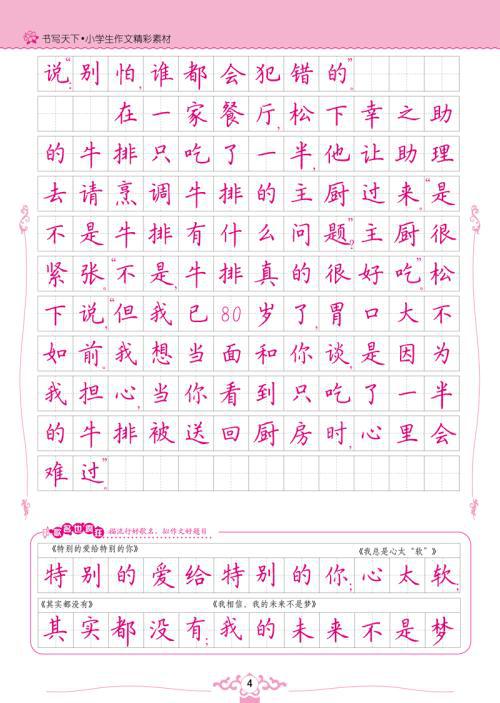 书写天下·小学生作文精彩素材
说“别怕,谁都会犯错的”。
在一家餐厅,松下幸之助
的牛排只吃了一半,他让助理
去请烹调牛排的主厨过来。“是
不是牛排有什么问题?”主厨很
紧张。“不是,牛排真的很好吃”。松
下说,“但我已80岁了,胃口大不
如前。我想当面和你谈,是因为
我担心,当你看到只吃了一半
的牛排被送回厨房时,心里会
难过”。
歌名也疯狂 描流行好歌名,拟作文好题目
《特别的爱给特别的你》 《我总是心太“软”》
特别的爱给特别的你,心太软,
《其实都没有》 《我相信,我的未来不是梦》
其实都没有;我的未来不是梦
4